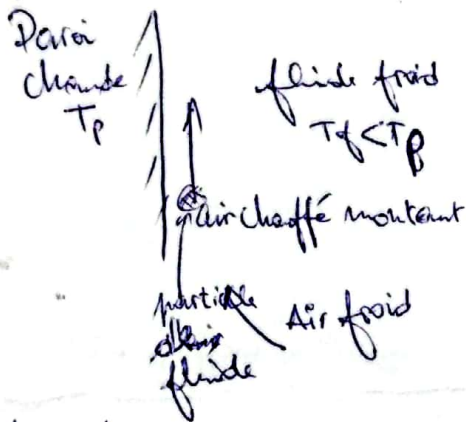 Paroi
chaude
Tp
fluide froid
Tf < Tp
air chauffé montant
particule
fluide
Air froid